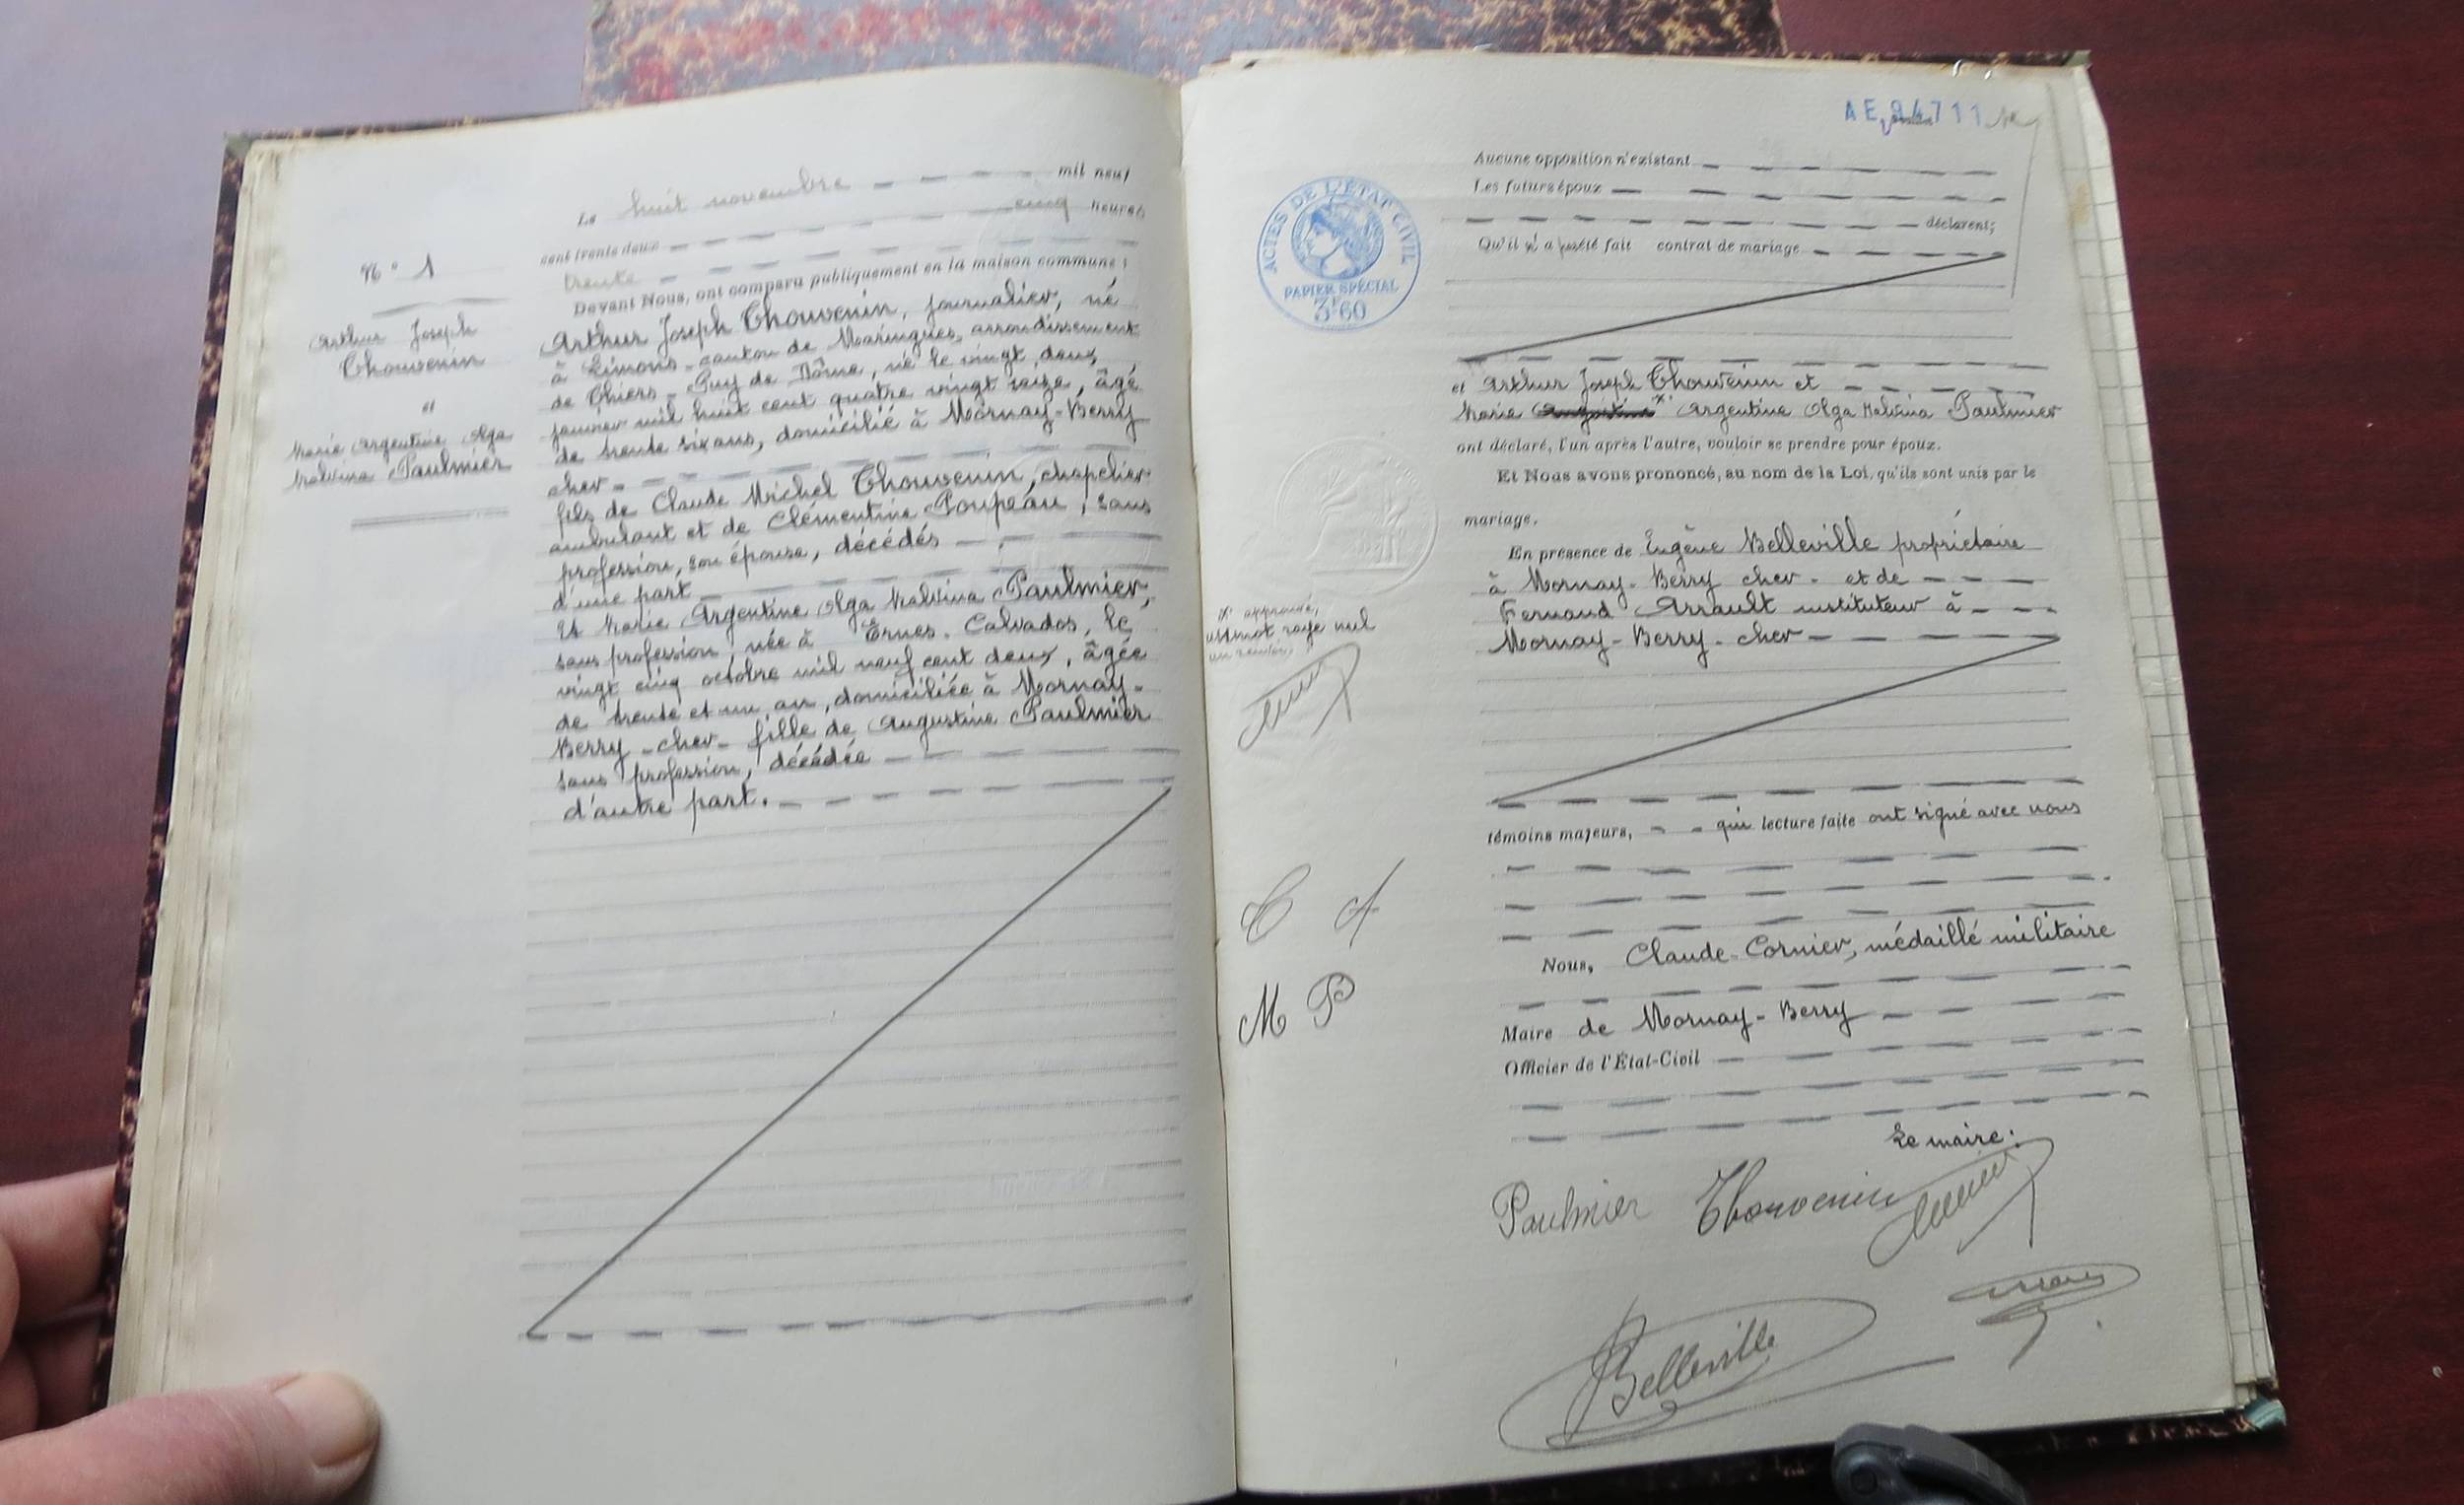 Le huit novembre mil neuf
cent trente deux cinq heures
trente
Devant Nous, ont comparu publiquement en la maison commune :
N° 1
Arthur Joseph
Thouvenin
et
Marie Argentine Olga
Malvina Paulmier
Arthur Joseph Thouvenin, journalier, né
à Limons - canton de Maringues, arrondissement
de Thiers - Puy de Dôme, né le vingt deux
janvier mil huit cent quatre vingt seize, âgé
de trente six ans, domicilié à Mornay-Berry
cher
fils de Claude Michel Thouvenin, chapelier
ambulant et de Clémentine Poupeau, sans
profession, son épouse, décédés
d'une part
Et Marie Argentine Olga Malvina Paulmier,
sans profession, née à Ernes - Calvados, le
vingt cinq octobre mil neuf cent deux, âgée
de trente et un an, domiciliée à Mornay-
Berry - cher - fille de Augustine Paulmier
sans profession, décédée
d'autre part.
AE 711
ACTES DE L'ÉTAT CIVIL
PAPIER SPÉCIAL
3F60
Aucune opposition n'existant
Les futurs époux
déclarent;
Qu'il n'a pas été fait contrat de mariage
et Arthur Joseph Thouvenin et
Marie Argentine Olga Malvina Paulmier
ont déclaré, l'un après l'autre, vouloir se prendre pour époux.
Et Nous avons prononcé, au nom de la Loi, qu'ils sont unis par le
mariage.
En présence de Eugène Belleville propriétaire
à Mornay-Berry cher - et de
Fernand Arrault instituteur à
Mornay-Berry - cher
approuvé,
mot rayé nul
témoins majeurs, qui lecture faite ont signé avec nous
C A
M P
Nous, Claude Cornier, médaillé militaire
Maire de Mornay-Berry
Officier de l'État-Civil
Le maire :
Paulmier Thouvenin
Belleville